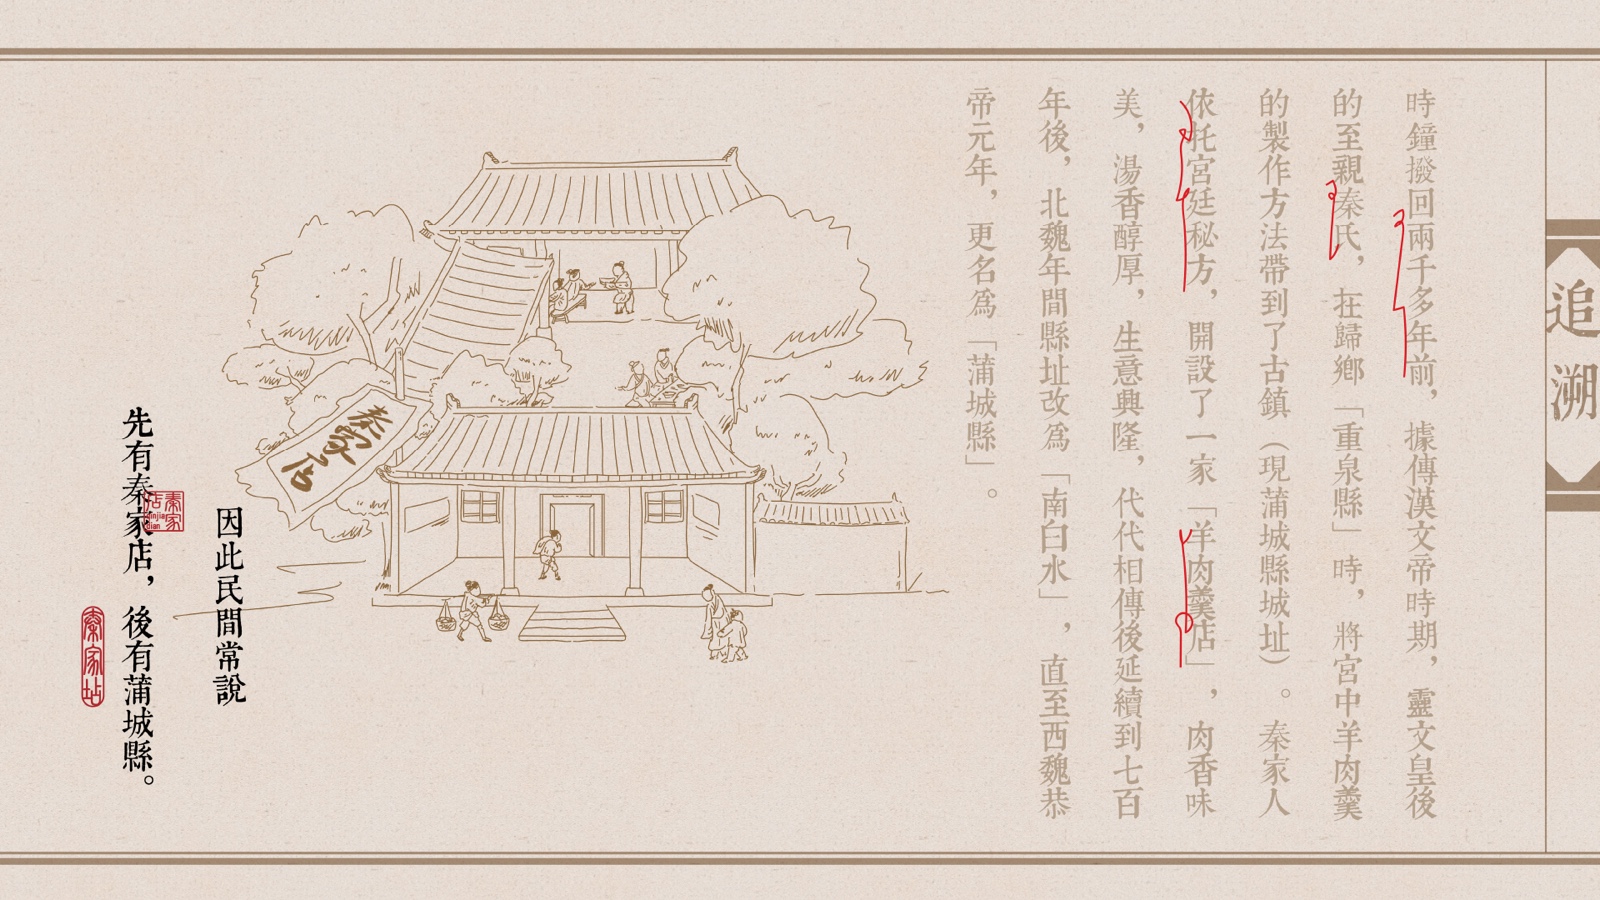 追溯
時鐘撥回兩千多年前，據傳漢文帝時期，靈文皇後
的至親秦氏，在歸鄉「重泉縣」時，將宮中羊肉羹
的製作方法帶到了古鎮（現蒲城縣城址）。秦家人
依托宮廷秘方，開設了一家「羊肉羹店」，肉香味
美，湯香醇厚，生意興隆，代代相傳後延續到七百
年後，北魏年間縣址改為「南白水」，直至西魏恭
帝元年，更名為「蒲城縣」。
秦家店
因此民間常說
先有秦家店，後有蒲城縣。
秦家店
qinjia
dian
秦家站